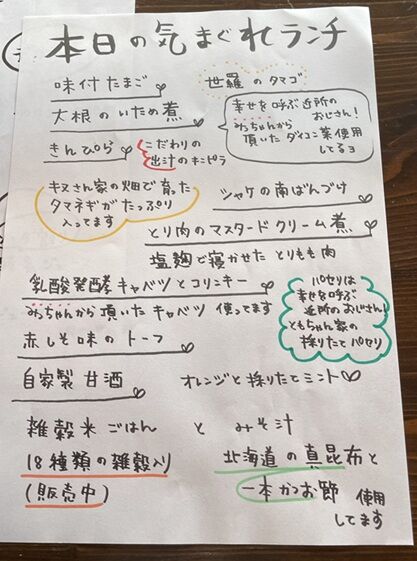 本日の気まぐれランチ
味付たまご
世羅のタマゴ
大根のいため煮
幸せを呼ぶ近所の
おじさん!
みっちゃんから
頂いたダイコン葉使用
してるヨ
きんぴら
こだわりの
出汁のキンピラ
キヌさん家の畑で育った
タマネギがたっぷり
入ってます
シャケの南ばんづけ
とり肉のマスタードクリーム煮
塩麹で寝かせたとりもも肉
乳酸発酵キャベツとコリンキー
みっちゃんから頂いたキャベツ使ってます
パセリは
幸せを呼ぶ
近所のおじさん!
ともちゃん家の
採りたてパセリ
赤しそ味のトーフ
自家製甘酒
オレンジと採りたてミント
雑穀米ごはん と みそ汁
18種類の雑穀入り
(販売中)
北海道の真昆布と
一本かつお節 使用
してます